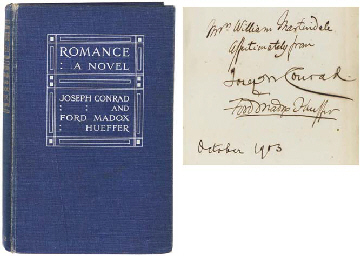 ROMANCE
A NOVEL
JOSEPH CONRAD
AND
FORD MADOX
HUEFFER
Mrs. William Martindale
affectionately from
Joseph Conrad
Ford Madox Hueffer
October 1903